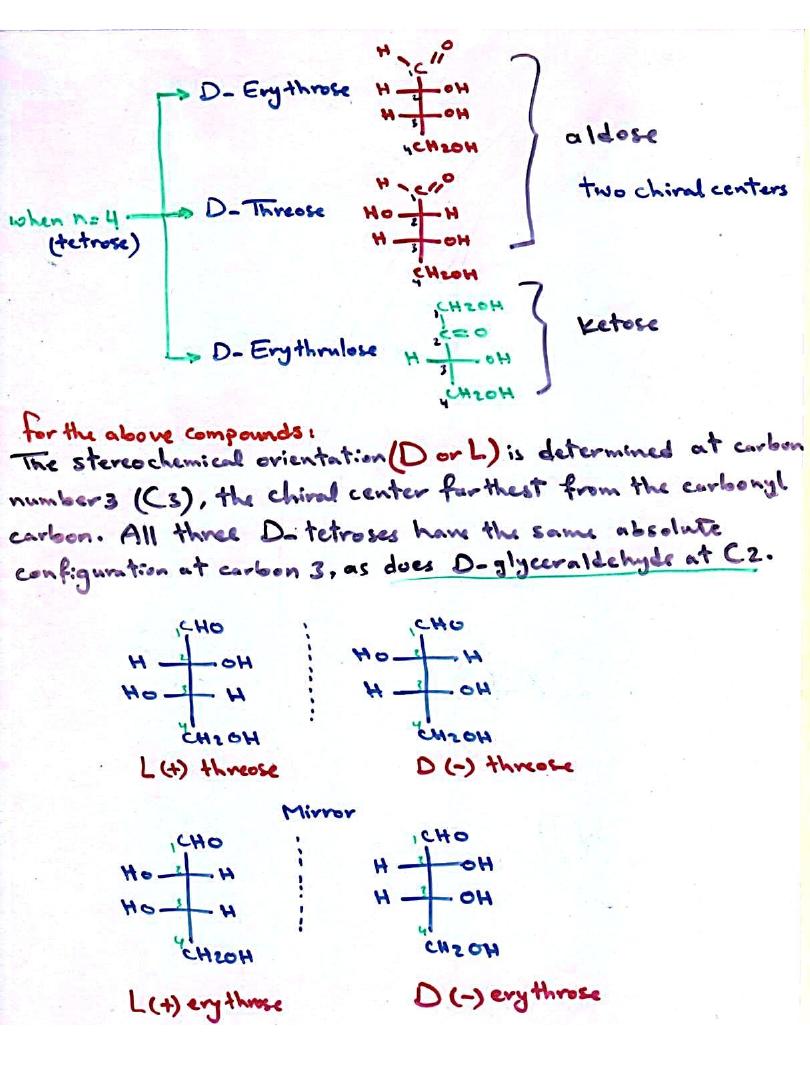 D-Erythrose
H
C
O
H
2
OH
H
3
OH
4CH2OH
aldose
two chiral centers
when n=4
(tetrose)
D-Threose
H
1
C
O
HO
2
H
H
3
OH
CH2OH
4
D-Erythrulose
1CH2OH
C=O
2
H
3
OH
4CH2OH
Ketose
for the above compounds:
The stereochemical orientation (D or L) is determined at carbon
number 3 (C3), the chiral center furthest from the carbonyl
carbon. All three D-tetroses have the same absolute
configuration at carbon 3, as does D-glyceraldehyde at C2.
1CHO
1CHO
H
2
OH
HO
2
H
HO
3
H
H
3
OH
4
CH2OH
4
CH2OH
L(+) threose
D(-) threose
Mirror
1CHO
1CHO
HO
2
H
H
OH
HO
3
H
H
OH
4
CH2OH
4
CH2OH
L(+) erythrose
D(-) erythrose